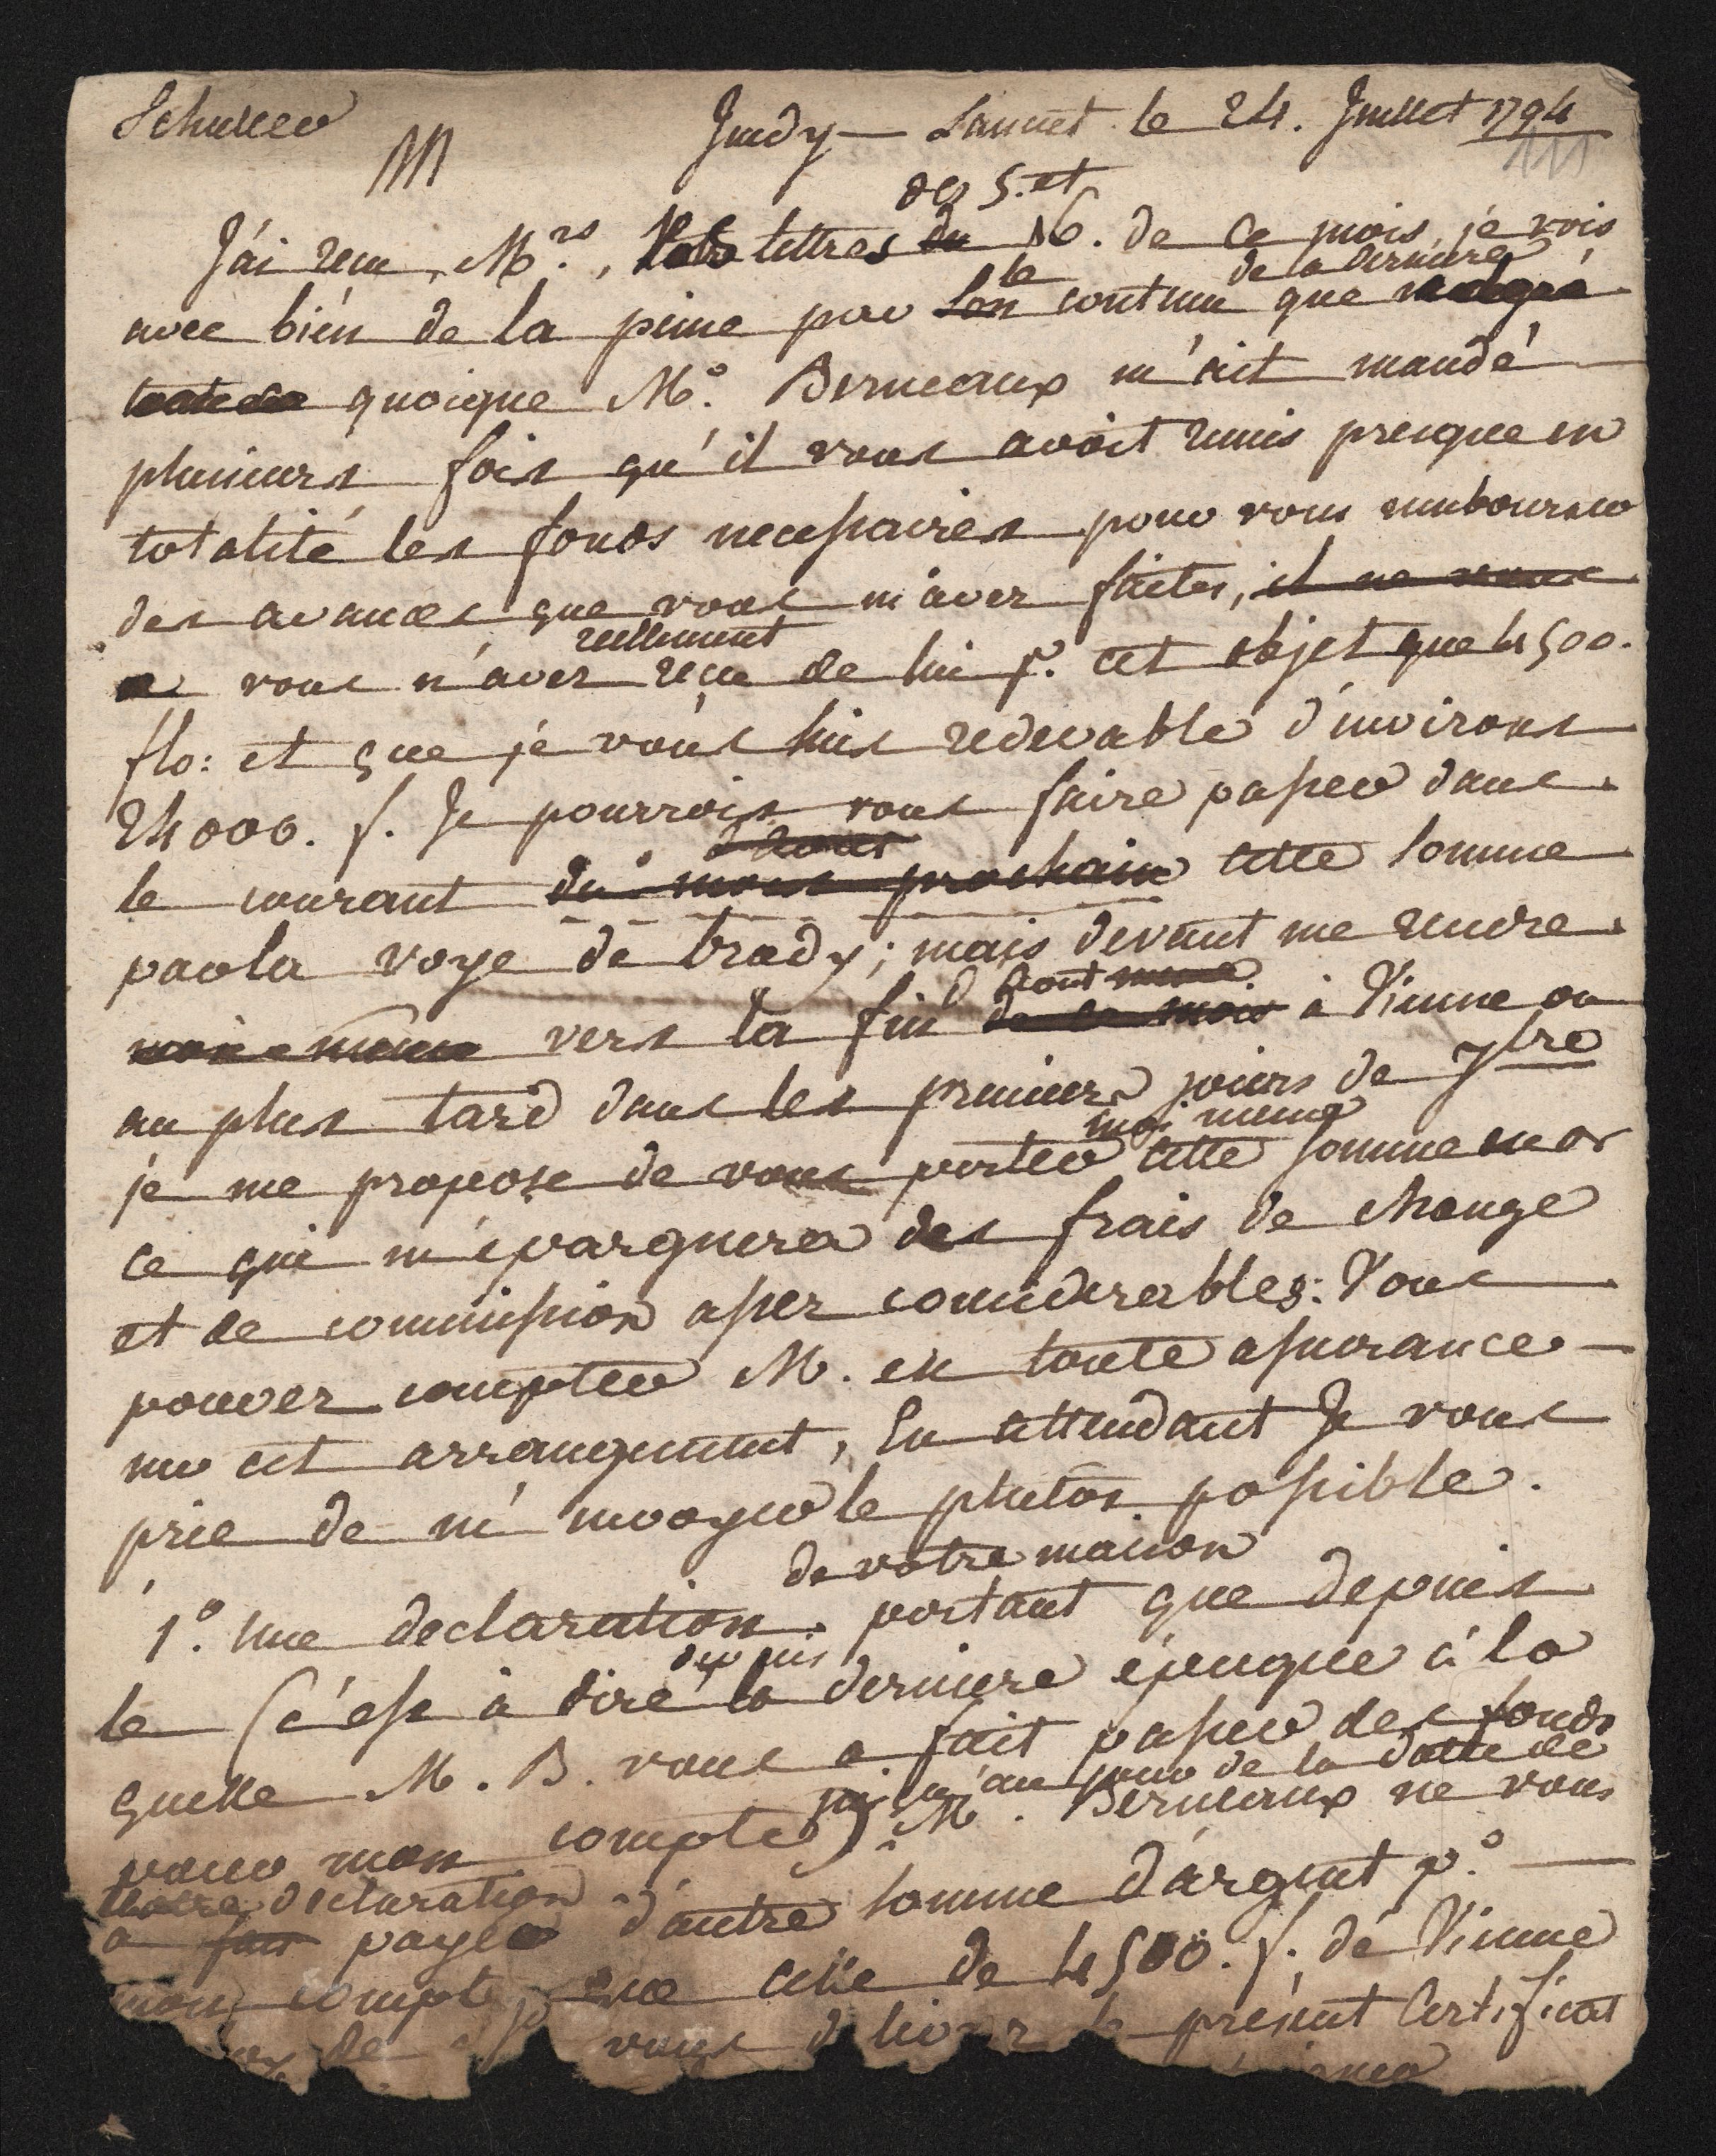 Schuller
Jmdy — Sannet le 24. Juillet 1794
111
des 5. et
J'ai recu, Mrs., Vos lettres du 16. de ce mois, je vois
le de la derniere
avec bién de la peine par son contenu que malgré
toute quoique Mr. Berneaux m'ait mandé
plusieurs fois qu'il vous avoit remis presque en
totalité les fonds necessaires pour vous rembourser
des avances que vous m'avez faites, il ne vous
reellement
vous n'avez reçu de lui pr. cet objet que 4500.
flo: et que je vous suis redevable d'environs
24000. f. Je pourrois vous faire passer dans
d'Aout
le courant du mois prochain cette somme
par la voye de brady; mais devant me rendre
d'Aout meme
moi-meme vers la fin de ce mois à Vienne ou
au plus tard dans les premiers jours de 7bre
moi meme
je me propose de vous porter cette somme en or
ce qui m'épargnera des frais de change
et de commission assez considerables: Vous
pouvez compter M. en toute assurance
sur cet arrangement, En attendant Je vous
prie de m'envoyer le plutôt possible.
de votre maison
1º. une declaration portant que depuis
depuis
le (c'est à dire la derniere époque à la
quelle M. B. vous a fait passer des fonds
jusqu'au jour de la datte de
pour mon compte) Mr. Berneaux ne vous
declaration
a fait payer d'autre somme d'argent pr.
mon compte que celle de 4500. f. de Vienne
de vous delivrer le présent Certificat